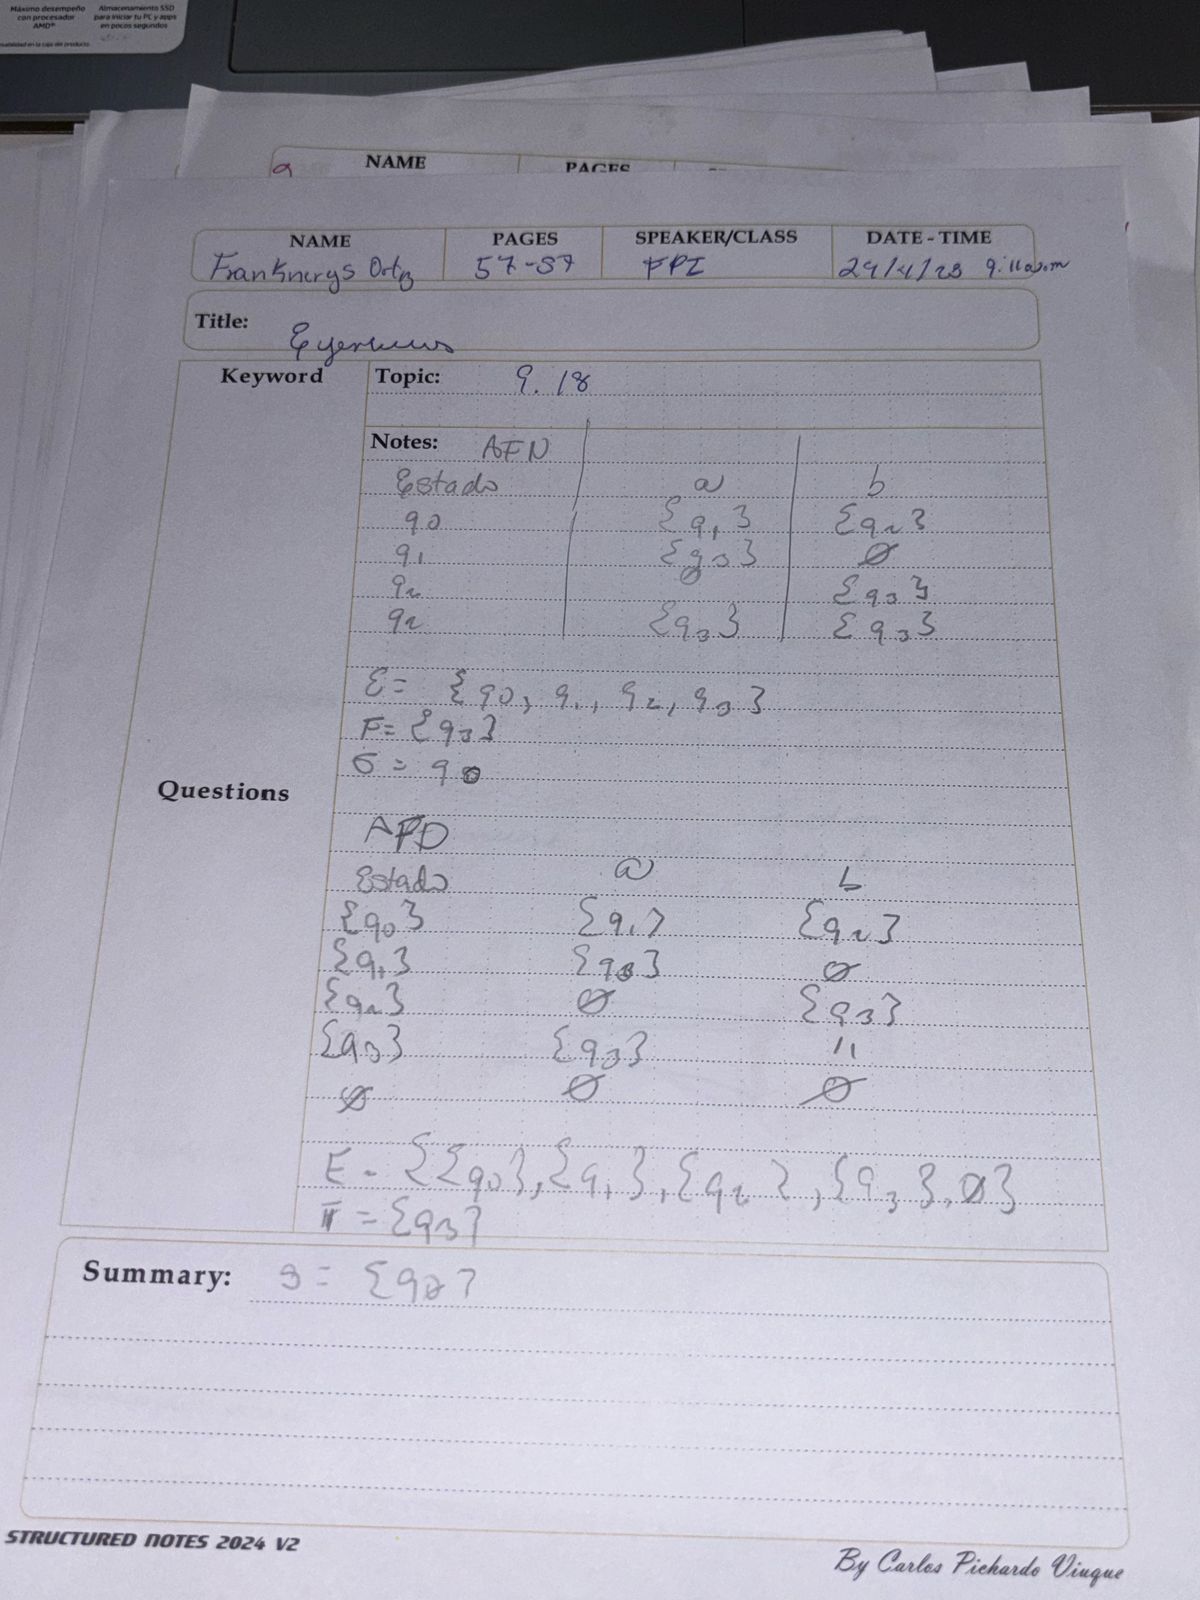 Máximo desempeño con procesador AMD®
Almacenamiento SSD para iniciar tu PC y apps en pocos segundos
NAME PAGES
NAME PAGES SPEAKER/CLASS DATE - TIME
57-57 FPI 9:11 a.m
Title:
Keyword Topic: 9.18
Notes: AFN
Estado a b
q0 {q1} {q2}
q1 {q3} ∅
q2 ∅ {q3}
q2 {q3} {q3}
E = {q0, q1, q2, q3}
F = {q3}
σ = q0
Questions
AFD
Estado a b
{q0} {q1} {q2}
{q1} {q3} ∅
{q2} ∅ {q3}
{q3} {q3} "
∅ ∅ ∅
E = {{q0}, {q1}, {q2}, {q3}, ∅}
F = {q3}
Summary:
STRUCTURED NOTES 2024 V2
By Carlos Pichardo Viuque